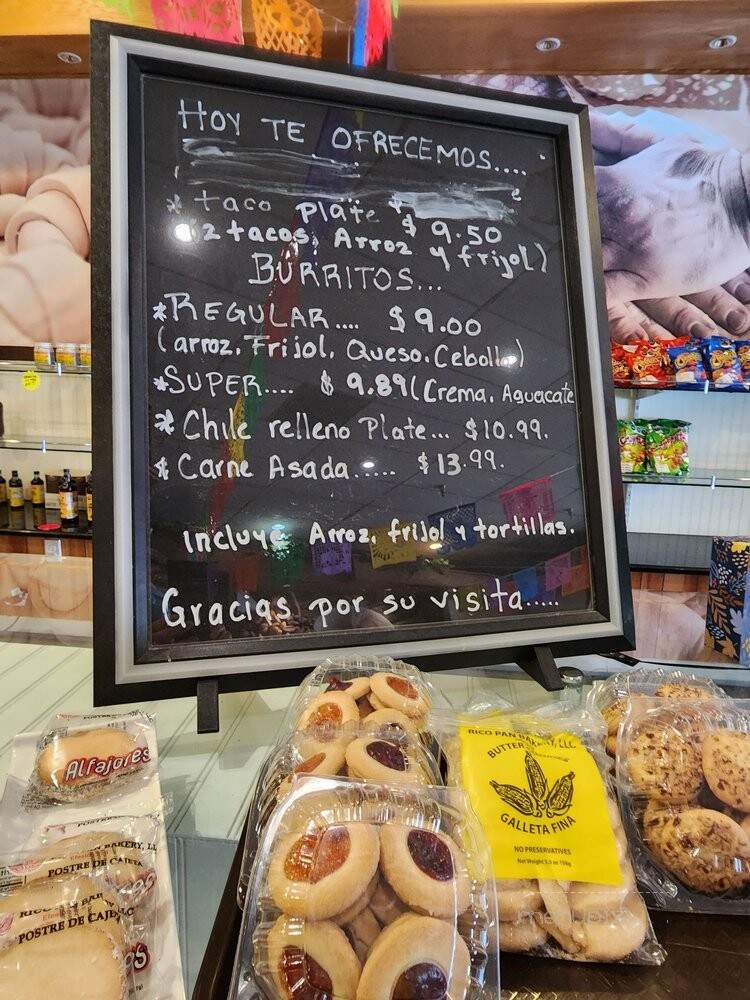 HOY TE OFRECEMOS....
* taco plate $ 9.50
(2 tacos, Arroz y frijol)
BURRITOS...
*REGULAR.... $9.00
(arroz, Frijol, Queso, Cebolla)
*SUPER.... $ 9.89 (Crema, Aguacate
* Chile relleno Plate... $10.99.
* Carne Asada..... $13.99.
Incluye Arroz, frijol y tortillas.
Gracias por su visita.....
Alfajores
RICO PAN BAKERY, LLC
BUTTER
GALLETA FINA
NO PRESERVATIVES
Net Weight 5.5 oz 156g
POSTRE DE CAJETA
POSTRE DE CAJ